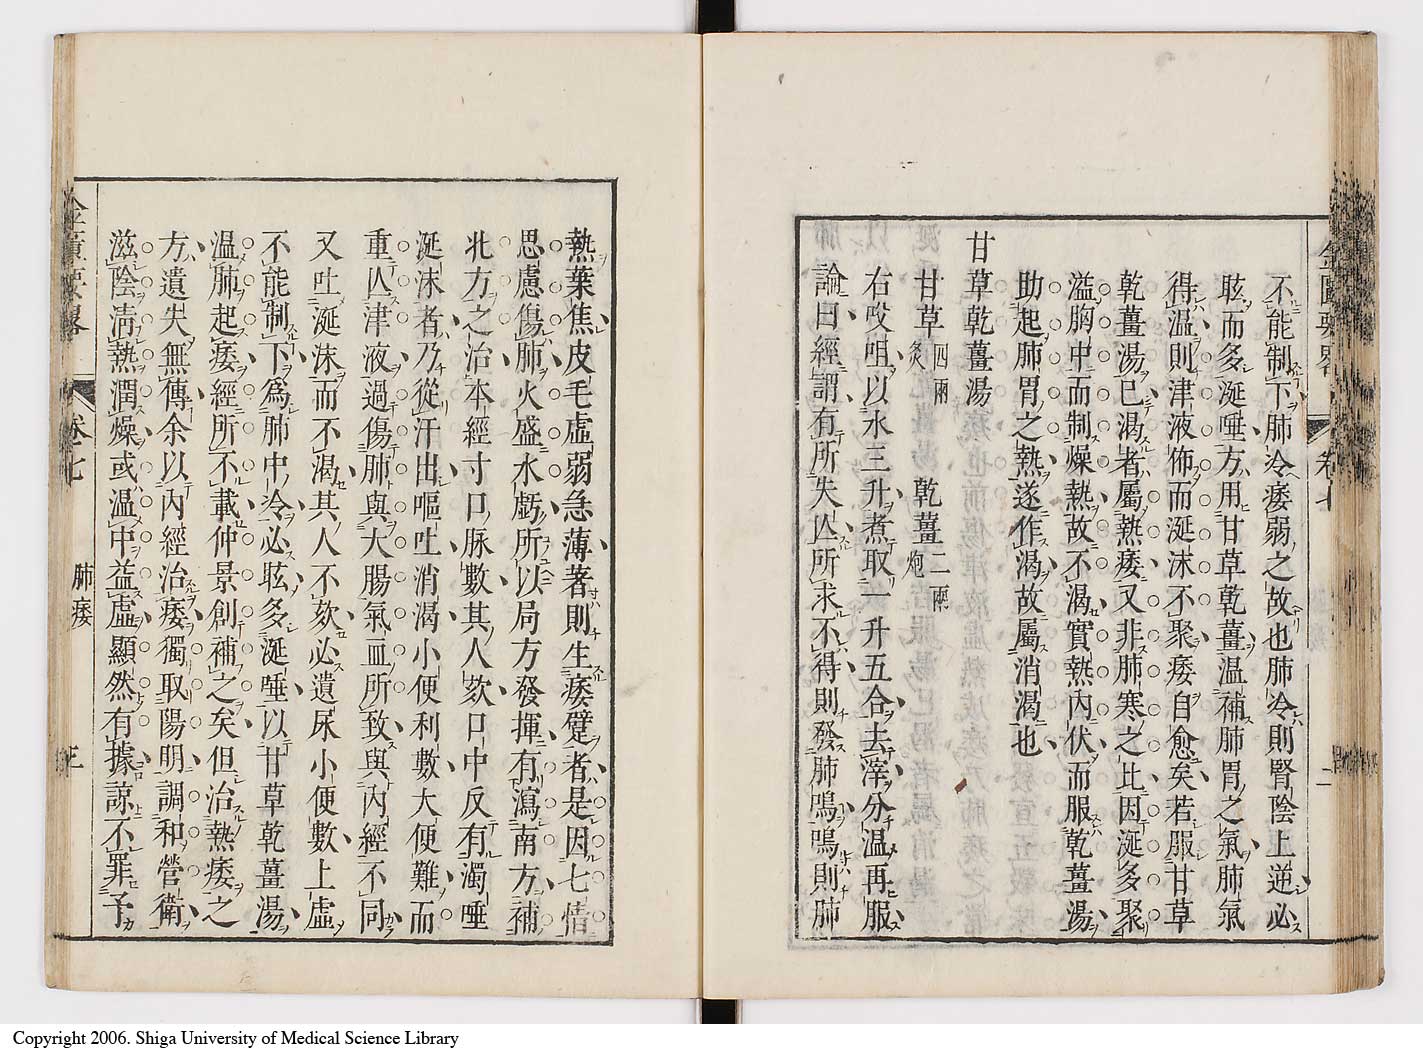 不能制下肺冷痿弱之故也肺冷則腎陰上逆必
眩而多涎唾方用甘草乾薑溫補肺胃之氣肺氣
得溫則津液佈而涎沫不聚痿自愈矣若服甘草
乾薑湯已渴者屬熱痿又非肺寒之比因涎多聚
溢胸中而制燥熱故不渴實熱內伏而服乾薑湯
助起肺胃之熱遂作渴故屬消渴也
甘草乾薑湯
甘草四兩炙 乾薑二兩炮
右㕮咀以水三升煮取一升五合去滓分溫再服
論曰經謂有所失亾所求不得則發肺鳴鳴則肺
金匱要畧 卷七 二
熱葉焦皮毛虛弱急薄著則生痿躄者是因七情
思慮傷肺火盛水虧所以局方發揮有瀉南方補
北方之治本經寸口脉數其人欬口中反有濁唾
涎沫者乃從汗出嘔吐消渴小便利數大便難而
重亾津液過傷肺與大腸氣血所致與內經不同
又吐涎沫而不渴其人不欬必遺尿小便數上虛
不能制下爲肺中冷必眩多涎唾以甘草乾薑湯
溫肺起痿經所不載仲景創補之矣但治熱痿之
方遺失無傳余以內經治痿獨取陽明調和營衛
滋陰清熱潤燥或溫中益虛顯然有據諒不罪予
金匱要畧 卷七 肺痿 三
Copyright 2006. Shiga University of Medical Science Library